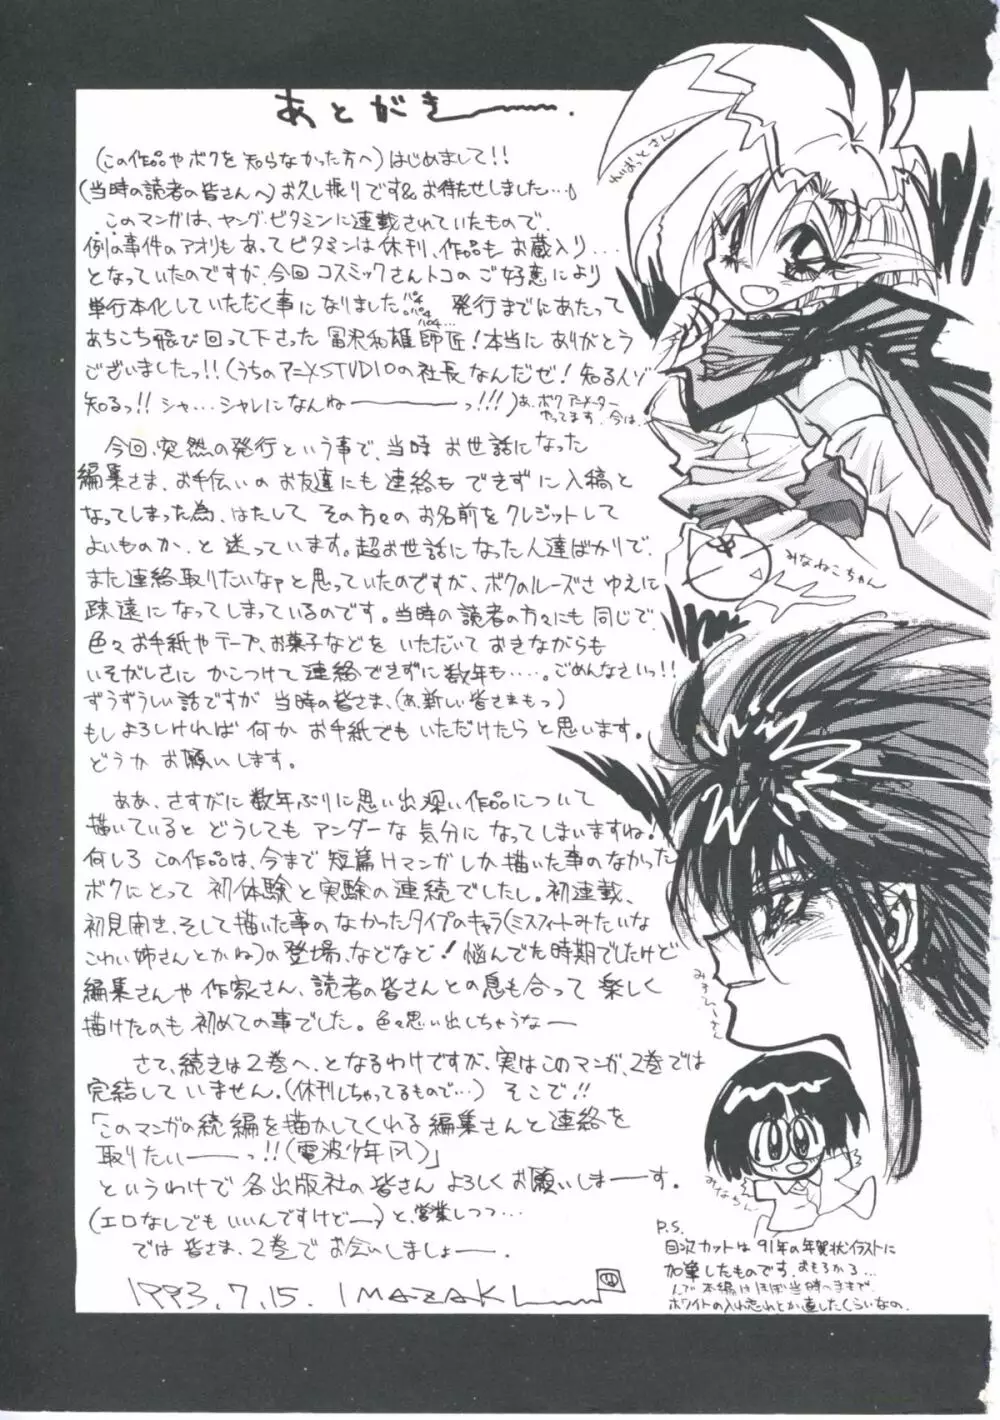 あとがき――.
(この作品やボクを知らなかった方へ)はじめまして!!
(当時の読者の皆さんへ)お久し振りです&お待たせしました…
このマンガは、ヤング・ビタミンに連載されていたもので、
例の事件のアオリもあってビタミンは休刊、作品もお蔵入り…
となっていたのですが、今回コスミックさんトコのご好意により
単行本化していただく事になりました。パチパチパチ… 発行までにあたって
あちこち飛び回って下さった冨沢和雄師匠!本当にありがとう
ございましたっ!!(うちのアニメSTUDIOの社長なんだぜ!知る人ゾ
知るっ!!シャ…シャレになんねーーーっ!!!)あ、ボクアニメーター
やってます、今は、
今回、突然の発行という事で、当時お世話になった
編集さま、お手伝いのお友達にも連絡もできずに入稿と
なってしまった為、はたしてその方々のお名前をクレジットして
よいものか、と迷っています。超お世話になった人達ばかりで、
また連絡取りたいなァと思っていたのですが、ボクのルーズさゆえに
疎遠になってしまっているのです。当時の読者の方々にも同じで、
色々お手紙やテープ、お菓子などをいただいておきながらも
いそがしさにかこつけて連絡できずに数年も……。ごめんなさいっ!!
ずうずうしい話ですが当時の皆さま、(あ、新しい皆さまもっ)
もしよろしければ何かお手紙でもいただけたらと思います。
どうかお願いします。
ああ、さすがに数年ぶりに思い出深い作品について
描いているとどうしてもアンダーな気分になってしまいますね!
何しろこの作品は、今まで短篇Hマンガしか描いた事のなかった
ボクにとって初体験と実験の連続でしたし。初連載、
初見開き、そして描いた事のなかったタイプのキャラ(ミスフィートみたいな
こわい姉さんとかね)の登場、などなど!悩んでた時期でしたけど
編集さんや作家さん、読者の皆さんとの息も合って楽しく
描けたのも初めての事でした。色々思い出しちゃうなー
さて、続きは2巻へ、となるわけですが、実はこのマンガ、2巻では
完結していません。(休刊しちゃってるもので…)そこで!!
「このマンガの続編を描かしてくれる編集さんと連絡を
取りたいーーっ!!(電波少年風)」
というわけで各出版社の皆さんよろしくお願いしまーす。
(エロなしでもいいんですけどーっ)と、営業しつつ…
では皆さま、2巻でお会いしましょー。
1993.7.15. IMAZAKI
れいおっとさん
みなねこちゃん
みなちん
P.S.
目次カットは91年の年賀状イラストに
加筆したものです。おもろかろ…
んで本編はほぼ当時のままで、
ホワイトの入れ忘れとか直したくらいなの.